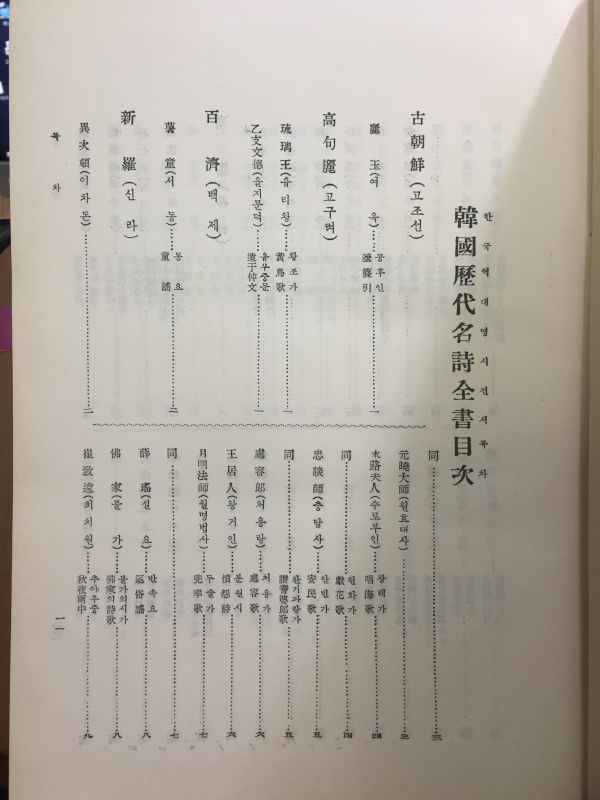 韓國歷代名詩全書目次
한국역대명시전서목차
古朝鮮(고조선)
麗玉(여옥) 箜篌引 공후인 一
高句麗(고구려)
琉璃王(유리왕) 黃鳥歌 황조가 一
乙支文德(을지문덕) 遺于仲文 유우중문 一
百濟(백제)
薯童(서동) 童謠 동요 二
新羅(신라)
異次頓(이차돈) 二
同 三
元曉大師(원효대사) 三
水路夫人(수로부인) 唱海歌 창해가 四
同 獻花歌 헌화가 四
忠談師(충담사) 安民歌 안민가 五
同 讚耆婆郎歌 찬기파랑가 五
處容郎(처용랑) 處容歌 처용가 六
王居人(왕거인) 憤怨詩 분원시 六
月明法師(월명법사) 兜率歌 두솔가 七
同 七
薛瑤(설요) 返俗謠 반속요 八
佛家(불가) 佛家의詩歌 불가의시가 八
崔致遠(최치원) 秋夜雨中 추야우중 九
목차
一